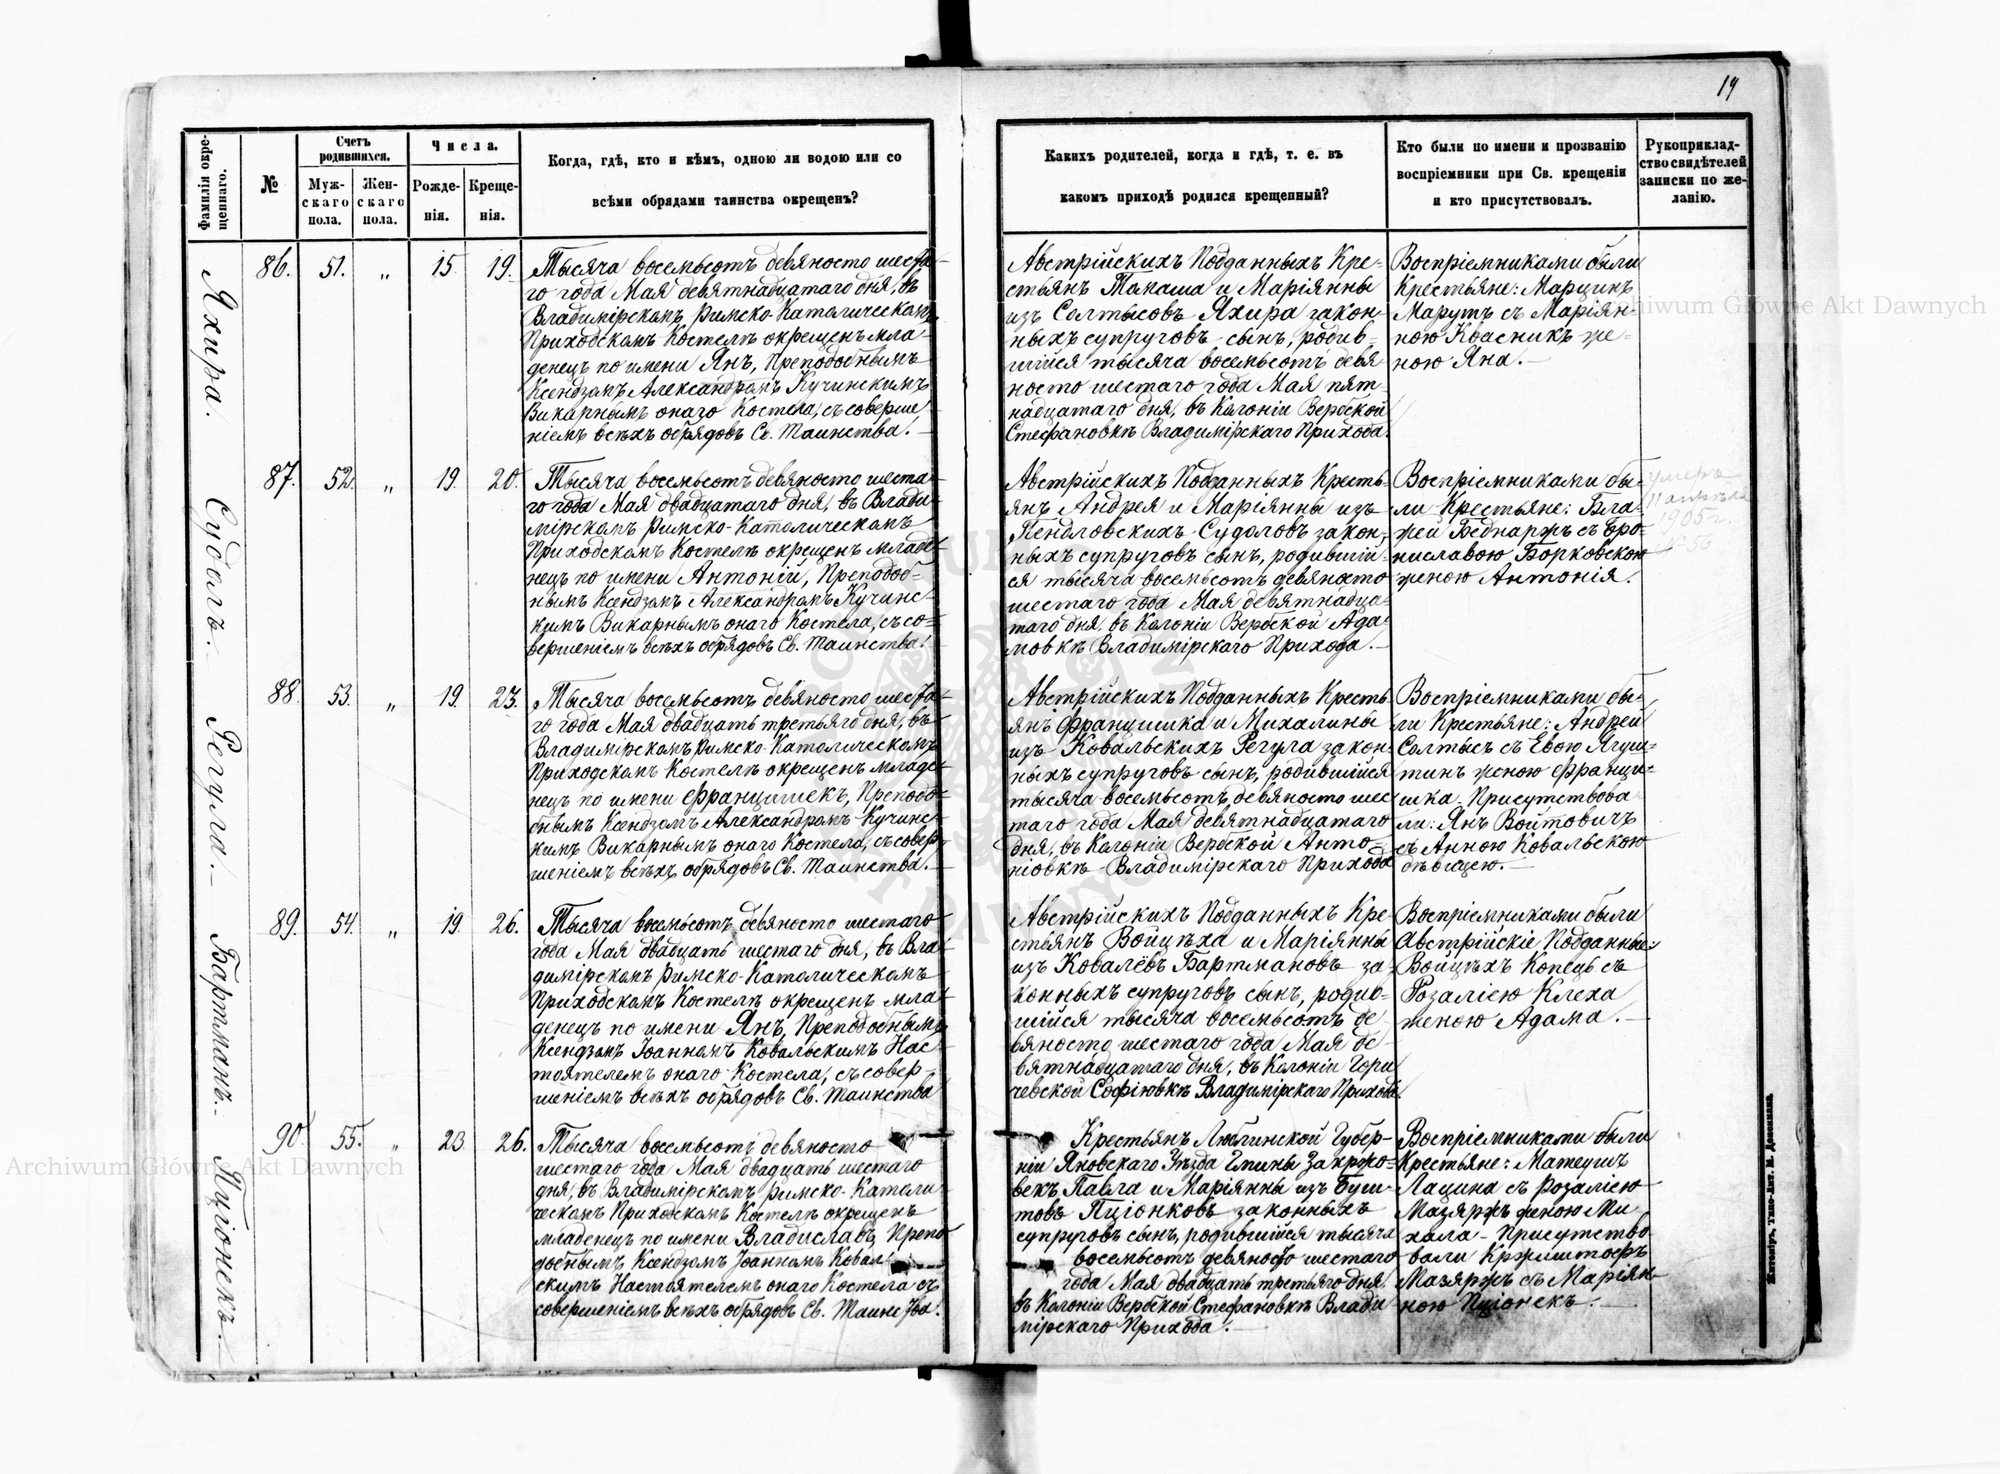 19
Фамилія окре-
щеннаго.
№
Счетъ
родившихся.
Муж-
скаго
пола.
Жен-
скаго
пола.
Числа.
Рожде-
нія.
Креще-
нія.
Когда, гдѣ, кто и кѣмъ, одною ли водою или со
всѣми обрядами таинства окрещенъ?
Какихъ родителей, когда и гдѣ, т. е. въ
какомъ приходѣ родился крещенный?
Кто были по имени и прозванію
воспріемники при Св. крещеніи
и кто присутствовалъ.
Рукоприклад-
ство свидѣтелей
записки по же-
ланію.
Яхира.
86. 51. „ 15 19.
Тысяча восемьсотъ девяносто шеста-
го года Мая девятнадцатаго дня, въ
Владимірскомъ Римско-Католическомъ
Приходскомъ Костелѣ окрещенъ мла-
денецъ по имени Янъ, Преподобнымъ
Ксендзомъ Александромъ Кучинскимъ
Викарнымъ онаго Костела, съ соверше-
ніемъ всѣхъ обрядовъ Св. Таинства.
Австрійскихъ Подданныхъ Кре-
стьянъ Томаша и Маріянны
изъ Солтысовъ Яхира закон-
ныхъ супруговъ сынъ, родив-
шійся тысяча восемьсотъ девя-
носто шестаго года Мая пят-
надцатаго дня, въ Колоніи Вербской
Стефановкѣ Владимірскаго Прихода.
Воспріемниками были
Крестьяне: Марцинъ
Марутъ съ Маріян-
ною Квасникъ же-
ною Яна.
Судолъ.
87. 52. „ 19. 20.
Тысяча восемьсотъ девяносто шеста-
го года Мая двадцатаго дня, въ Влади-
мірскомъ Римско-Католическомъ
Приходскомъ Костелѣ окрещенъ младе-
нецъ по имени Антоній, Преподоб-
нымъ Ксендзомъ Александромъ Кучинс-
кимъ Викарнымъ онаго Костела, съ со-
вершеніемъ всѣхъ обрядовъ Св. Таинства.
Австрійскихъ Подданныхъ Кресть-
янъ Андрея и Маріянны изъ
Пендловскихъ Судоловъ закон-
ныхъ супруговъ сынъ, родившій-
ся тысяча восемьсотъ девяносто
шестаго года Мая девятнадца-
таго дня, въ Колоніи Вербской Ада-
мовкѣ Владимірскаго Прихода.
Воспріемниками бы-
ли Крестьяне: Бла-
жей Беднаржъ съ Бро-
ниславою Борковскою
женою Антонія.
Умеръ
11 апрѣля
1905 г.
№ 56
Регула.
88. 53. „ 19. 23.
Тысяча восемьсотъ девяносто шеста-
го года Мая двадцать третьяго дня, въ
Владимірскомъ Римско-Католическомъ
Приходскомъ Костелѣ окрещенъ младе-
нецъ по имени Францишекъ, Преподо-
бнымъ Ксендзомъ Александромъ Кучинс-
кимъ Викарнымъ онаго Костела, съ совер-
шеніемъ всѣхъ обрядовъ Св. Таинства.
Австрійскихъ Подданныхъ Кресть-
янъ Францишка и Михалины
изъ Ковальскихъ Регула закон-
ныхъ супруговъ сынъ, родившійся
тысяча восемьсотъ девяносто шес
таго года Мая девятнадцатаго
дня, въ Колоніи Вербской Анто-
ніовкѣ Владимірскаго Прихода
Воспріемниками бы-
ли Крестьяне: Андрей
Солтысъ съ Евою Ягуш-
тинъ женою Франци-
шка. Присутствова
ли: Янъ Войтовичъ
съ Анною Ковальскою
дѣвицею.
Бартманъ.
89. 54. „ 19. 26.
Тысяча восемьсотъ девяносто шестаго
года Мая двадцать шестаго дня, въ Вла-
димірскомъ Римско-Католическомъ
Приходскомъ Костелѣ окрещенъ мла-
денецъ по имени Янъ, Преподобнымъ
Ксендзомъ Іоанномъ Ковальскимъ Нас-
тоятелемъ онаго Костела, съ совер-
шеніемъ всѣхъ обрядовъ Св. Таинства
Австрійскихъ Подданныхъ Кре-
стьянъ Войцѣха и Маріянны
изъ Ковалёвъ Бартмановъ за-
конныхъ супруговъ сынъ, родив-
шійся тысяча восемьсотъ де-
вяносто шестаго года Мая де-
вятнадцатаго дня, въ Колоніи Гори
чевской Софіювкѣ Владимірскаго Прихода.
Воспріемниками были
Австрійскіе Подданные:
Войцѣхъ Копець съ
Розаліею Клеха
женою Адама.
Пціонекъ.
90. 55. „ 23 26.
Тысяча восемьсотъ девяносто
шестаго года Мая двадцать шестаго
дня, въ Владимірскомъ Римско-Католи
ческомъ Приходскомъ Костелѣ окрещенъ
младенецъ по имени Владиславъ, Препо
добнымъ Ксендзомъ Іоанномъ Коваль
скимъ Настоятелемъ онаго Костела съ
совершеніемъ всѣхъ обрядовъ Св. Таинства.
Крестьянъ Люблинской Губер-
ніи Яновскаго Уѣзда Гмины Закржо-
векъ Павла и Маріянны изъ Буш-
товъ Пціонковъ законныхъ
супруговъ сынъ, родившійся тысяча
восемьсотъ девяносто шестаго
года Мая двадцать третьяго дня,
въ Колоніи Вербской Стефановкѣ Влади
мірскаго Прихода.
Воспріемниками были
Крестьяне: Матеушъ
Лацина съ Розаліею
Мазяржъ женою Ми-
хала. Присутство-
вали Кржиштофъ
Мазяржъ съ Маріян-
ною Пціонекъ.
Житомiръ, Типо-Лит. М. Дененмана.
Archiwum Główne Akt Dawnych
Archiwum Główne Akt Dawnych